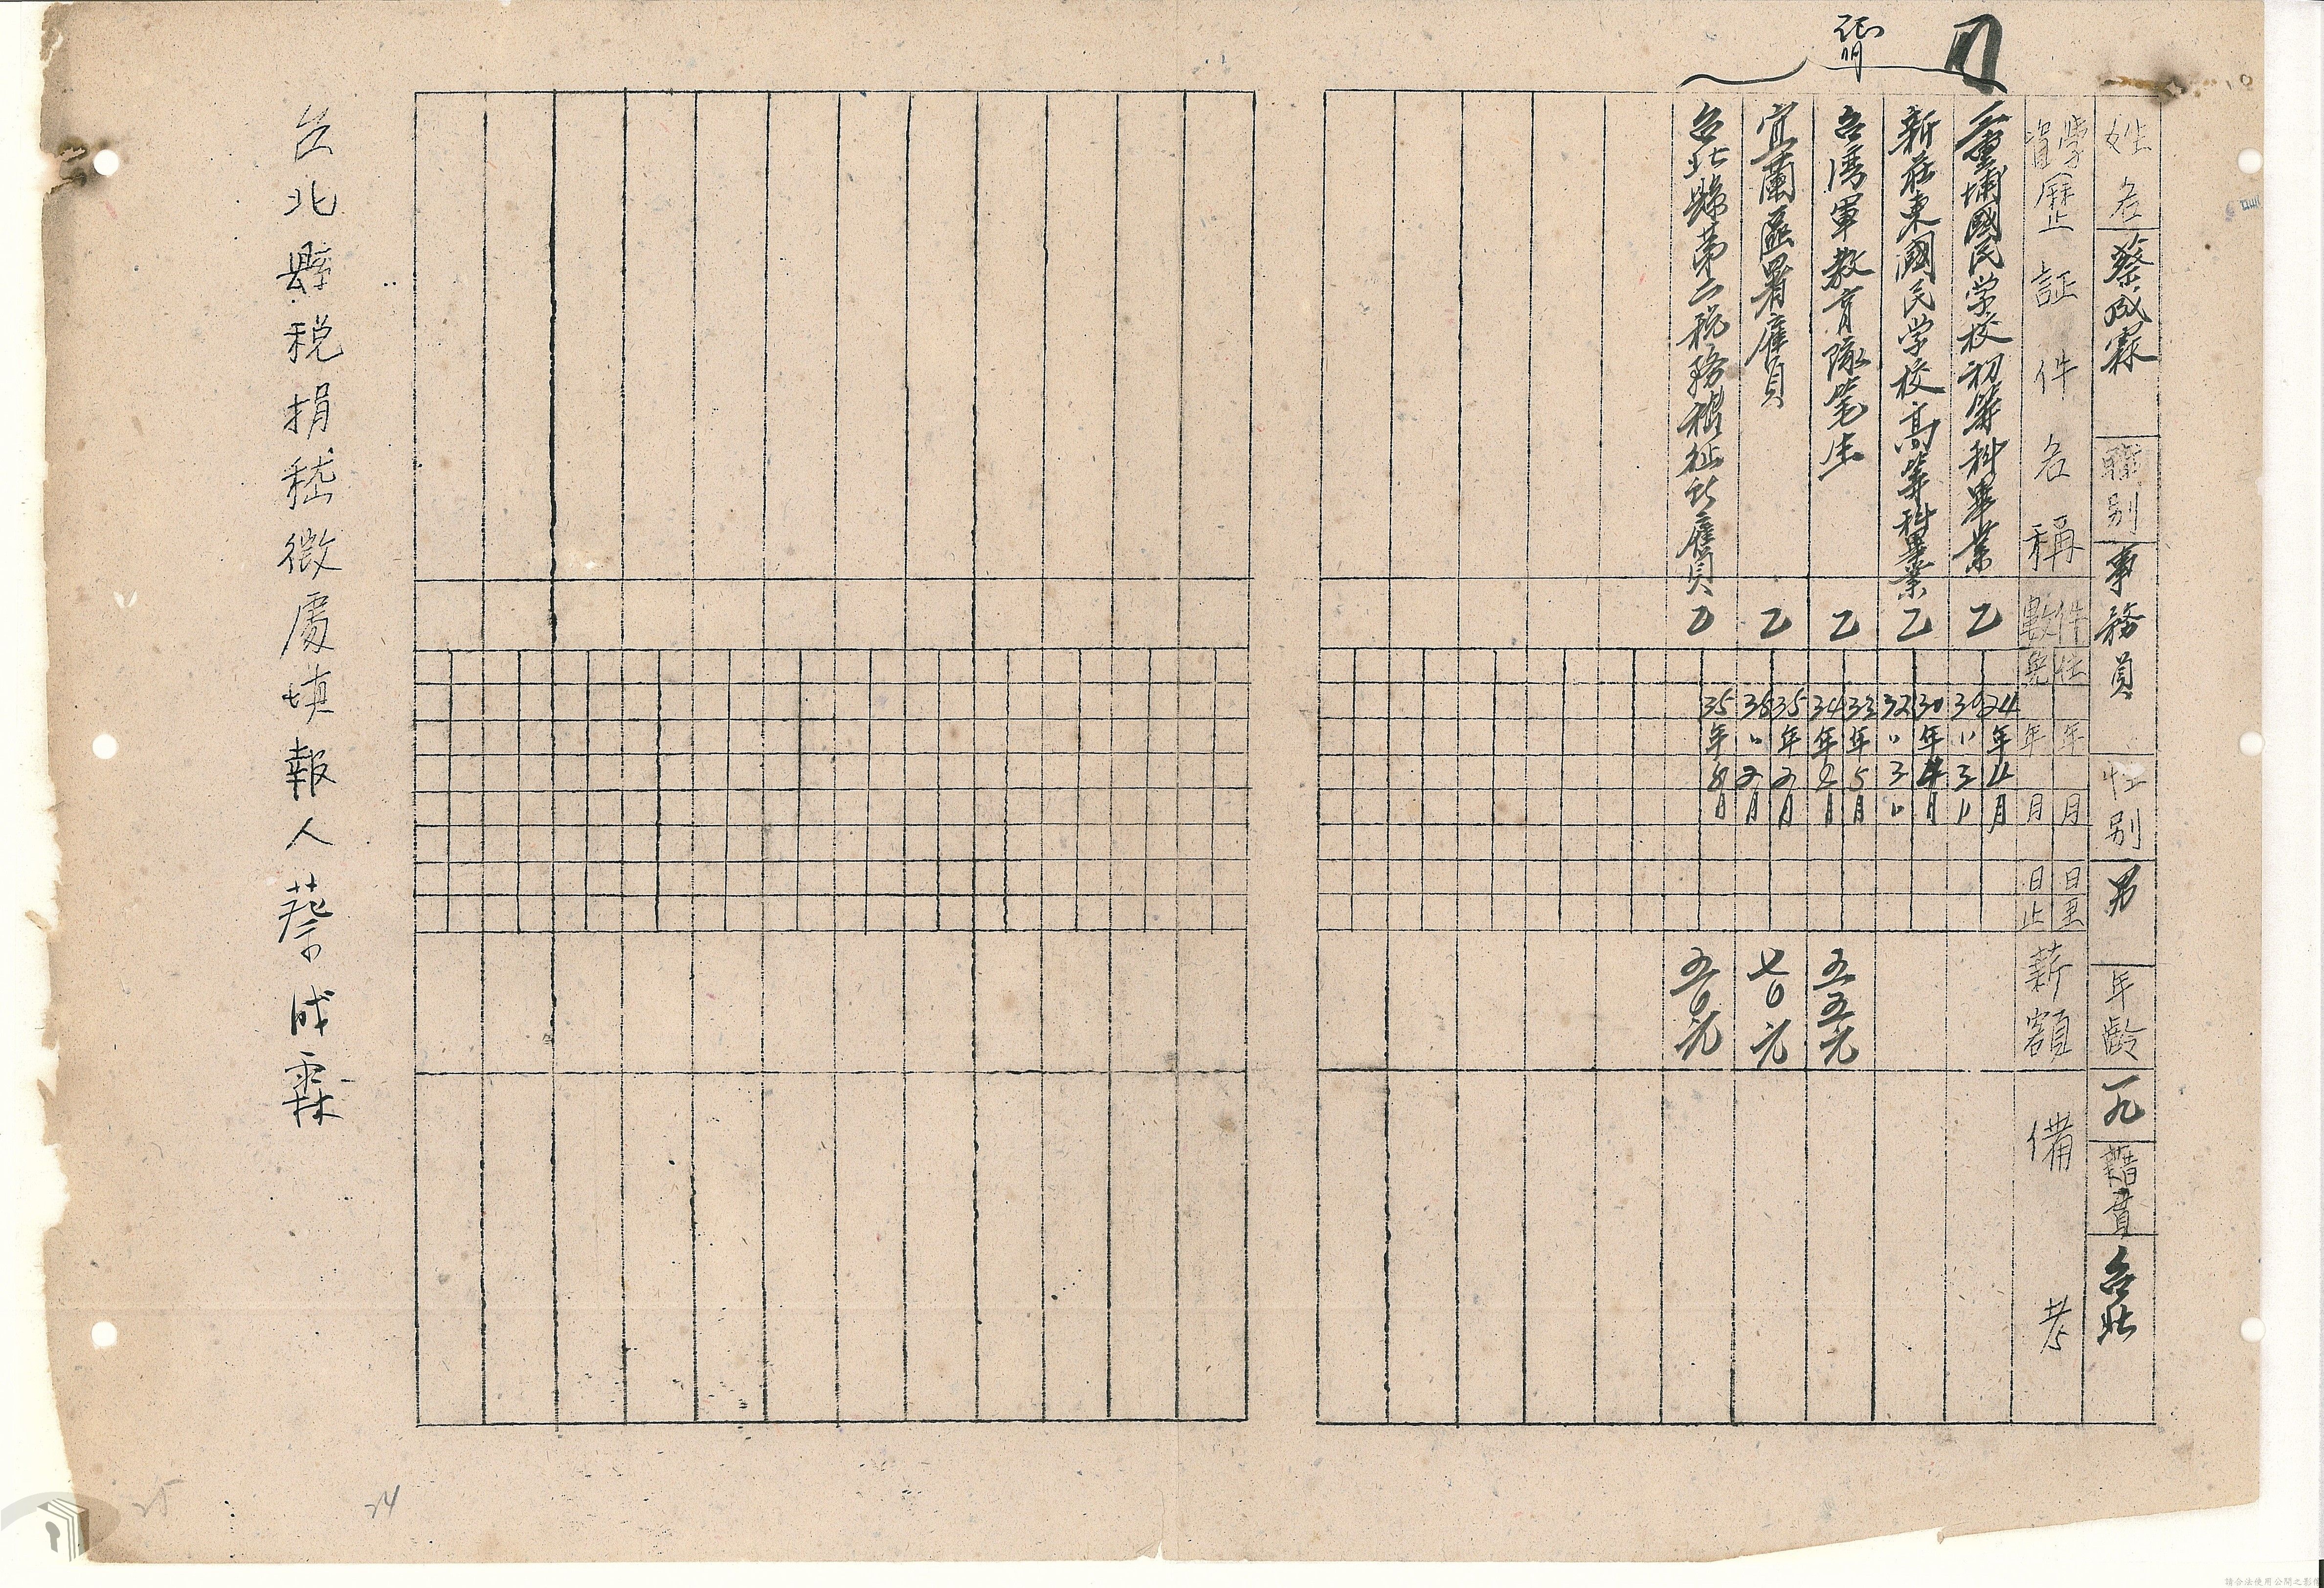 姓名 蔡成霖 職別 事務員 性別 男 年齡 一九 籍貫 台北
學資歷証件名稱 件數 任 年 月 日至 免 年 月 日止 薪額 備考
三重埔國民学校初等科畢業 乙 24年4月 30〃3〃
新莊東國民学校高等科畢業 乙 30年4月 32〃3〃
台湾軍教育隊筆生 乙 33年5月 34年8月 五五元
宜蘭區署雇員 乙 35年2月 35〃7月 七0元
台北縣第二稅務稽征所雇員 乙 35年8月 五0元
証明
台北縣稅捐稽徵處填報人蔡成霖
24
25
請合法使用公開之影像